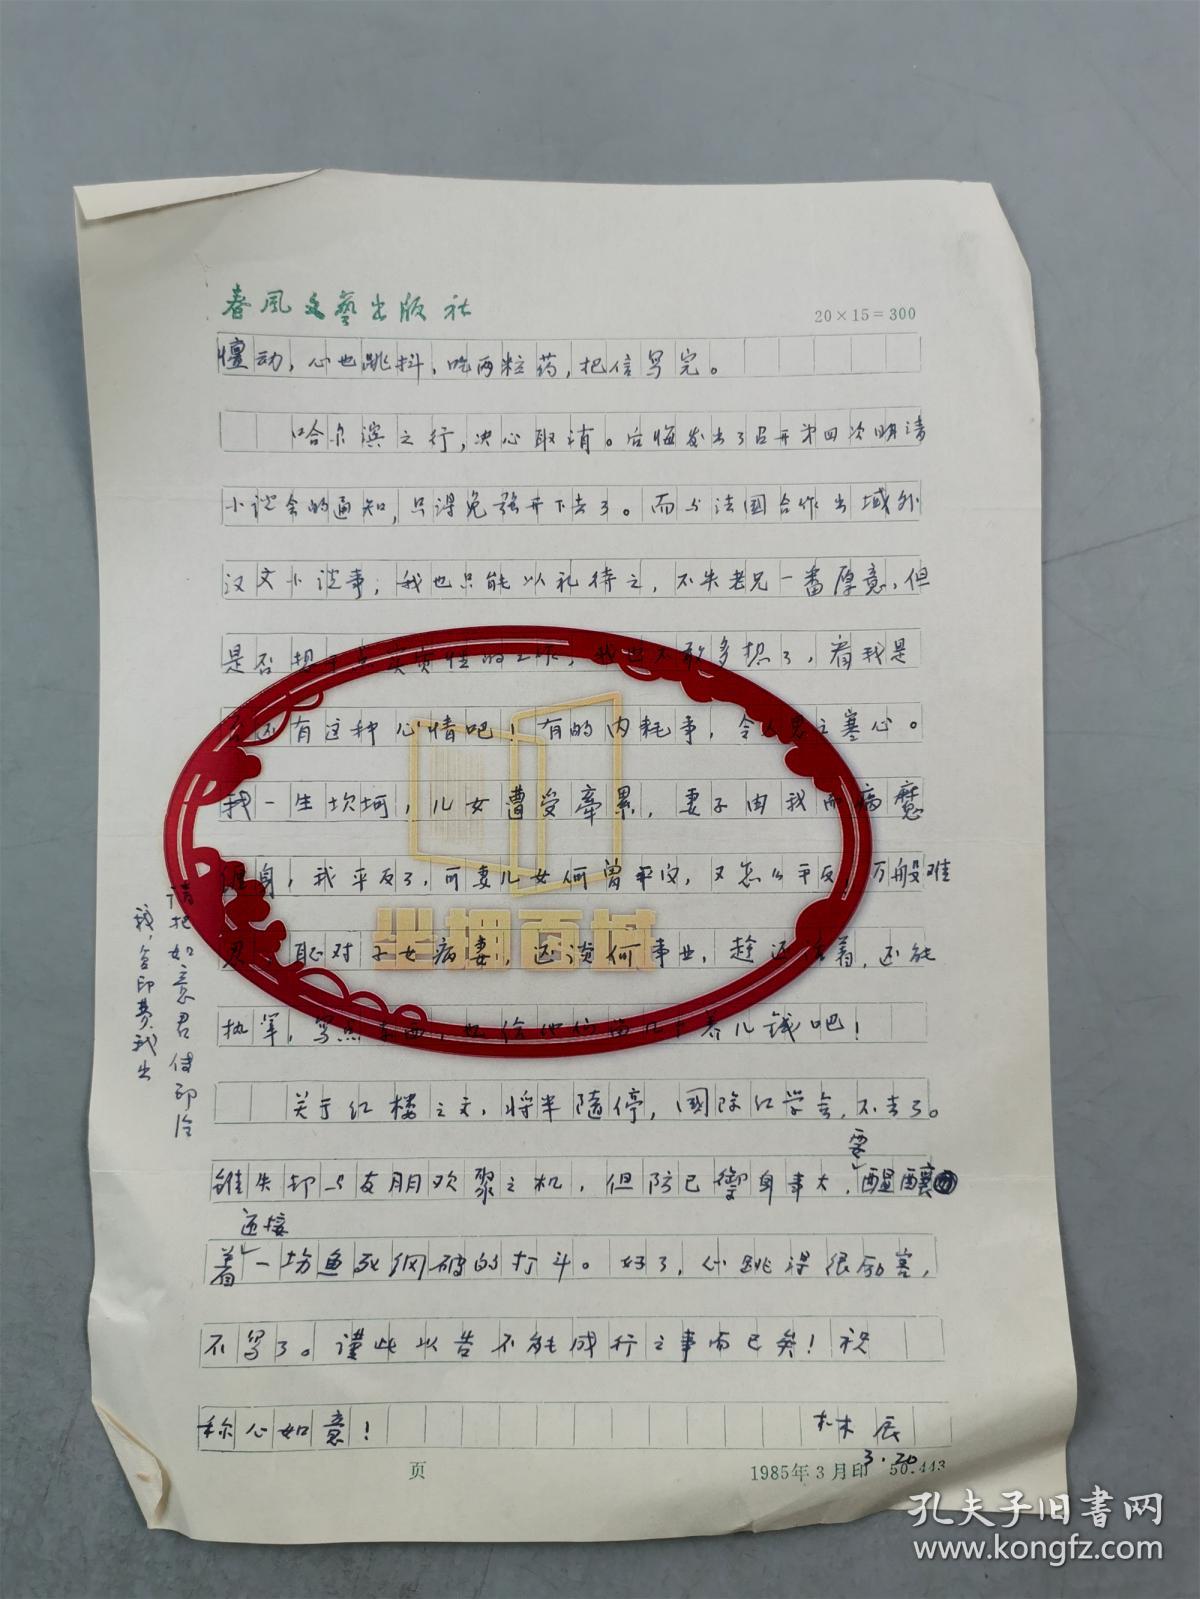 春风文藝出版社
20×15=300
动，心也跳抖，吃两粒药，把信写完。
哈尔滨之行，决心取消。后悔发出了召开第四次明清
小说会的通知，只得免强开下去了。而与法国合作出域外
汉文小说事，我也只能以礼待之，不失老兄一番厚意，但
是否想干点实质性的工作，我也不敢多想了，看我是
否还有这种心情吧！有的内耗事，令人思之寒心。
我一生坎坷，儿女遭受牵累，妻子由我而病魔
缠身，我平反了，可妻儿女何曾平反，又怎么平反，万般难
忍，耻对子女病妻，还谈何事业，趁还活着，还能
执笔，写点东西，好给他们留几个养儿钱吧！
关于红楼之文，将半随停，国际红学会，不去了。
虽失却与友朋欢聚之机，但防己御身事大，要醖釀
着迎接一场鱼死网破的打斗。好了，心跳得很厉害，
不写了。谨此以告不能成行之事而已矣！祝
称心如意！
林辰
3.20
请把如意君传印给
我，复印费我出
页
1985年3月印 50.443
坐拥百城
孔夫子旧书网
www.kongfz.com